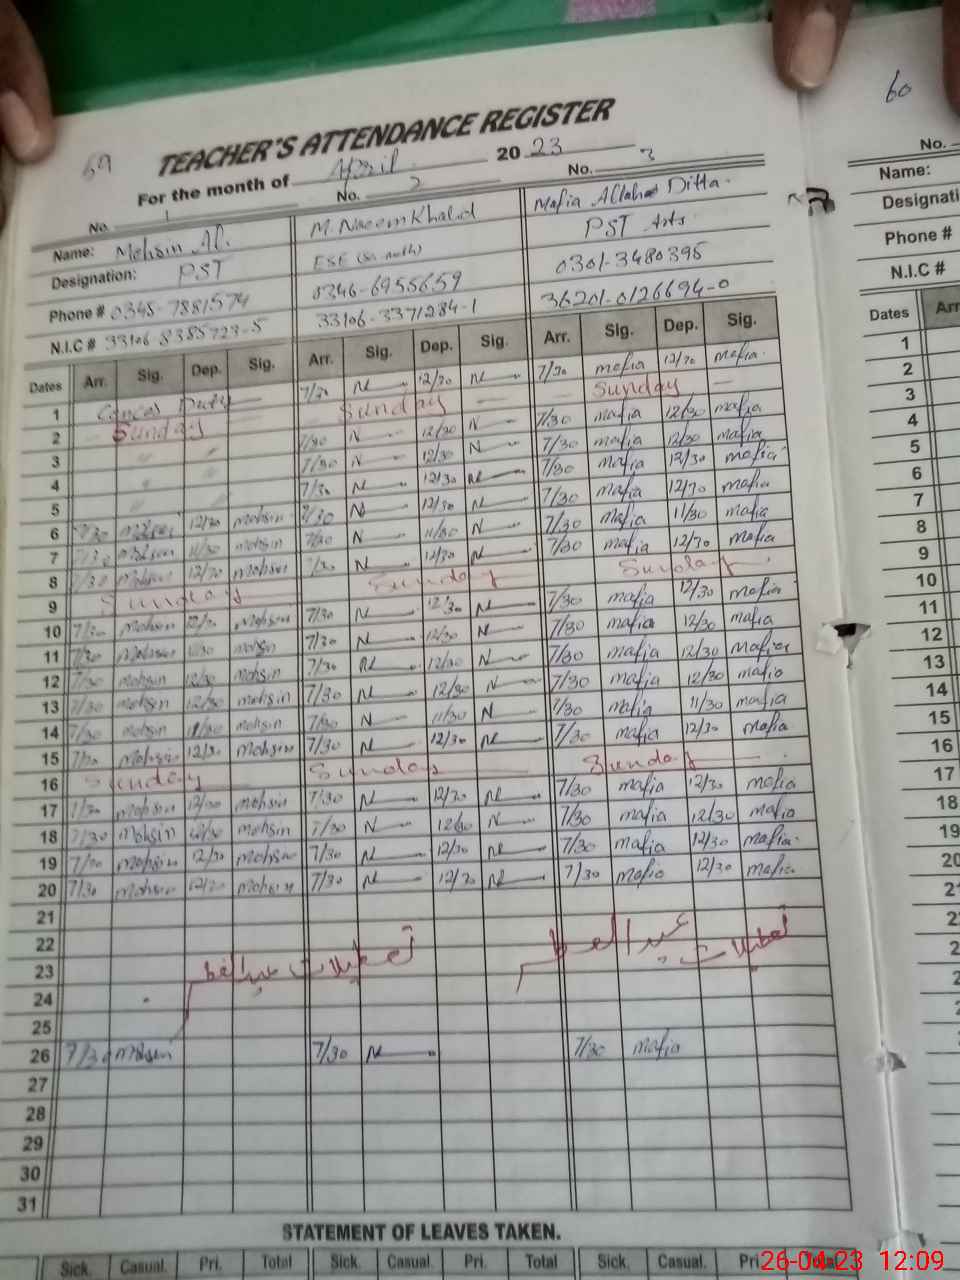 59
60
TEACHER'S ATTENDANCE REGISTER
For the month of April 2023
No. 1 No. 2 No. 3
Name: Mohsin Ali M. Naeem Khalid Mafia Allah Ditta
Designation: PST ESE PST Arts
Phone # 0345-7881574 0346-6955659 0301-3480395
N.I.C # 33106-8385723-5 33106-3371284-1 36201-0126694-0
Dates Arr. Sig. Dep. Sig. Arr. Sig. Dep. Sig. Arr. Sig. Dep. Sig.
1 Duty 7/30 N 12/30 N 7/30 mafia 12/30 mafia
2 Sunday Sunday Sunday
3 7/30 N 12/30 N 7/30 mafia 12/30 mafia
4 7/30 N 12/30 N 7/30 mafia 12/30 mafia
5 7/30 N 12/30 N 7/30 mafia 12/30 mafia
6 7/30 mohsin 12/30 mohsin 7/30 N 12/30 N 7/30 mafia 12/30 mafia
7 7/30 mohsin 11/30 mohsin 7/30 N 11/30 N 7/30 mafia 11/30 mafia
8 7/30 mohsin 12/30 mohsin 7/30 N 12/30 N 7/30 mafia 12/30 mafia
9 Sunday Sunday Sunday
10 7/30 mohsin 12/30 mohsin 7/30 N 12/30 N 7/30 mafia 12/30 mafia
11 7/30 mohsin 12/30 mohsin 7/30 N 12/30 N 7/30 mafia 12/30 mafia
12 7/30 mohsin 12/30 mohsin 7/30 N 12/30 N 7/30 mafia 12/30 mafia
13 7/30 mohsin 12/30 mohsin 7/30 N 12/30 N 7/30 mafia 12/30 mafia
14 7/30 mohsin 11/30 mohsin 7/30 N 11/30 N 7/30 mafia 11/30 mafia
15 7/30 mohsin 12/30 mohsin 7/30 N 12/30 N 7/30 mafia 12/30 mafia
16 Sunday Sunday Sunday
17 7/30 mohsin 12/30 mohsin 7/30 N 12/30 N 7/30 mafia 12/30 mafia
18 7/30 mohsin 12/30 mohsin 7/30 N 12/30 N 7/30 mafia 12/30 mafia
19 7/30 mohsin 12/30 mohsin 7/30 N 12/30 N 7/30 mafia 12/30 mafia
20 7/30 mohsin 12/30 mohsin 7/30 N 12/30 N 7/30 mafia 12/30 mafia
21
22
تعطیلات عید الفطر تعطیلات عید الفطر
23
24
25
26 7/30 mohsin 7/30 N 7/30 mafia
27
28
29
30
31
STATEMENT OF LEAVES TAKEN.
Sick. Casual. Pri. Total Sick. Casual. Pri. Total Sick. Casual. Pri. Total
No.
Name:
Designati
Phone #
N.I.C #
Dates Arr
1
2
3
4
5
6
7
8
9
10
11
12
13
14
15
16
17
18
19
20
26-04-23 12:09